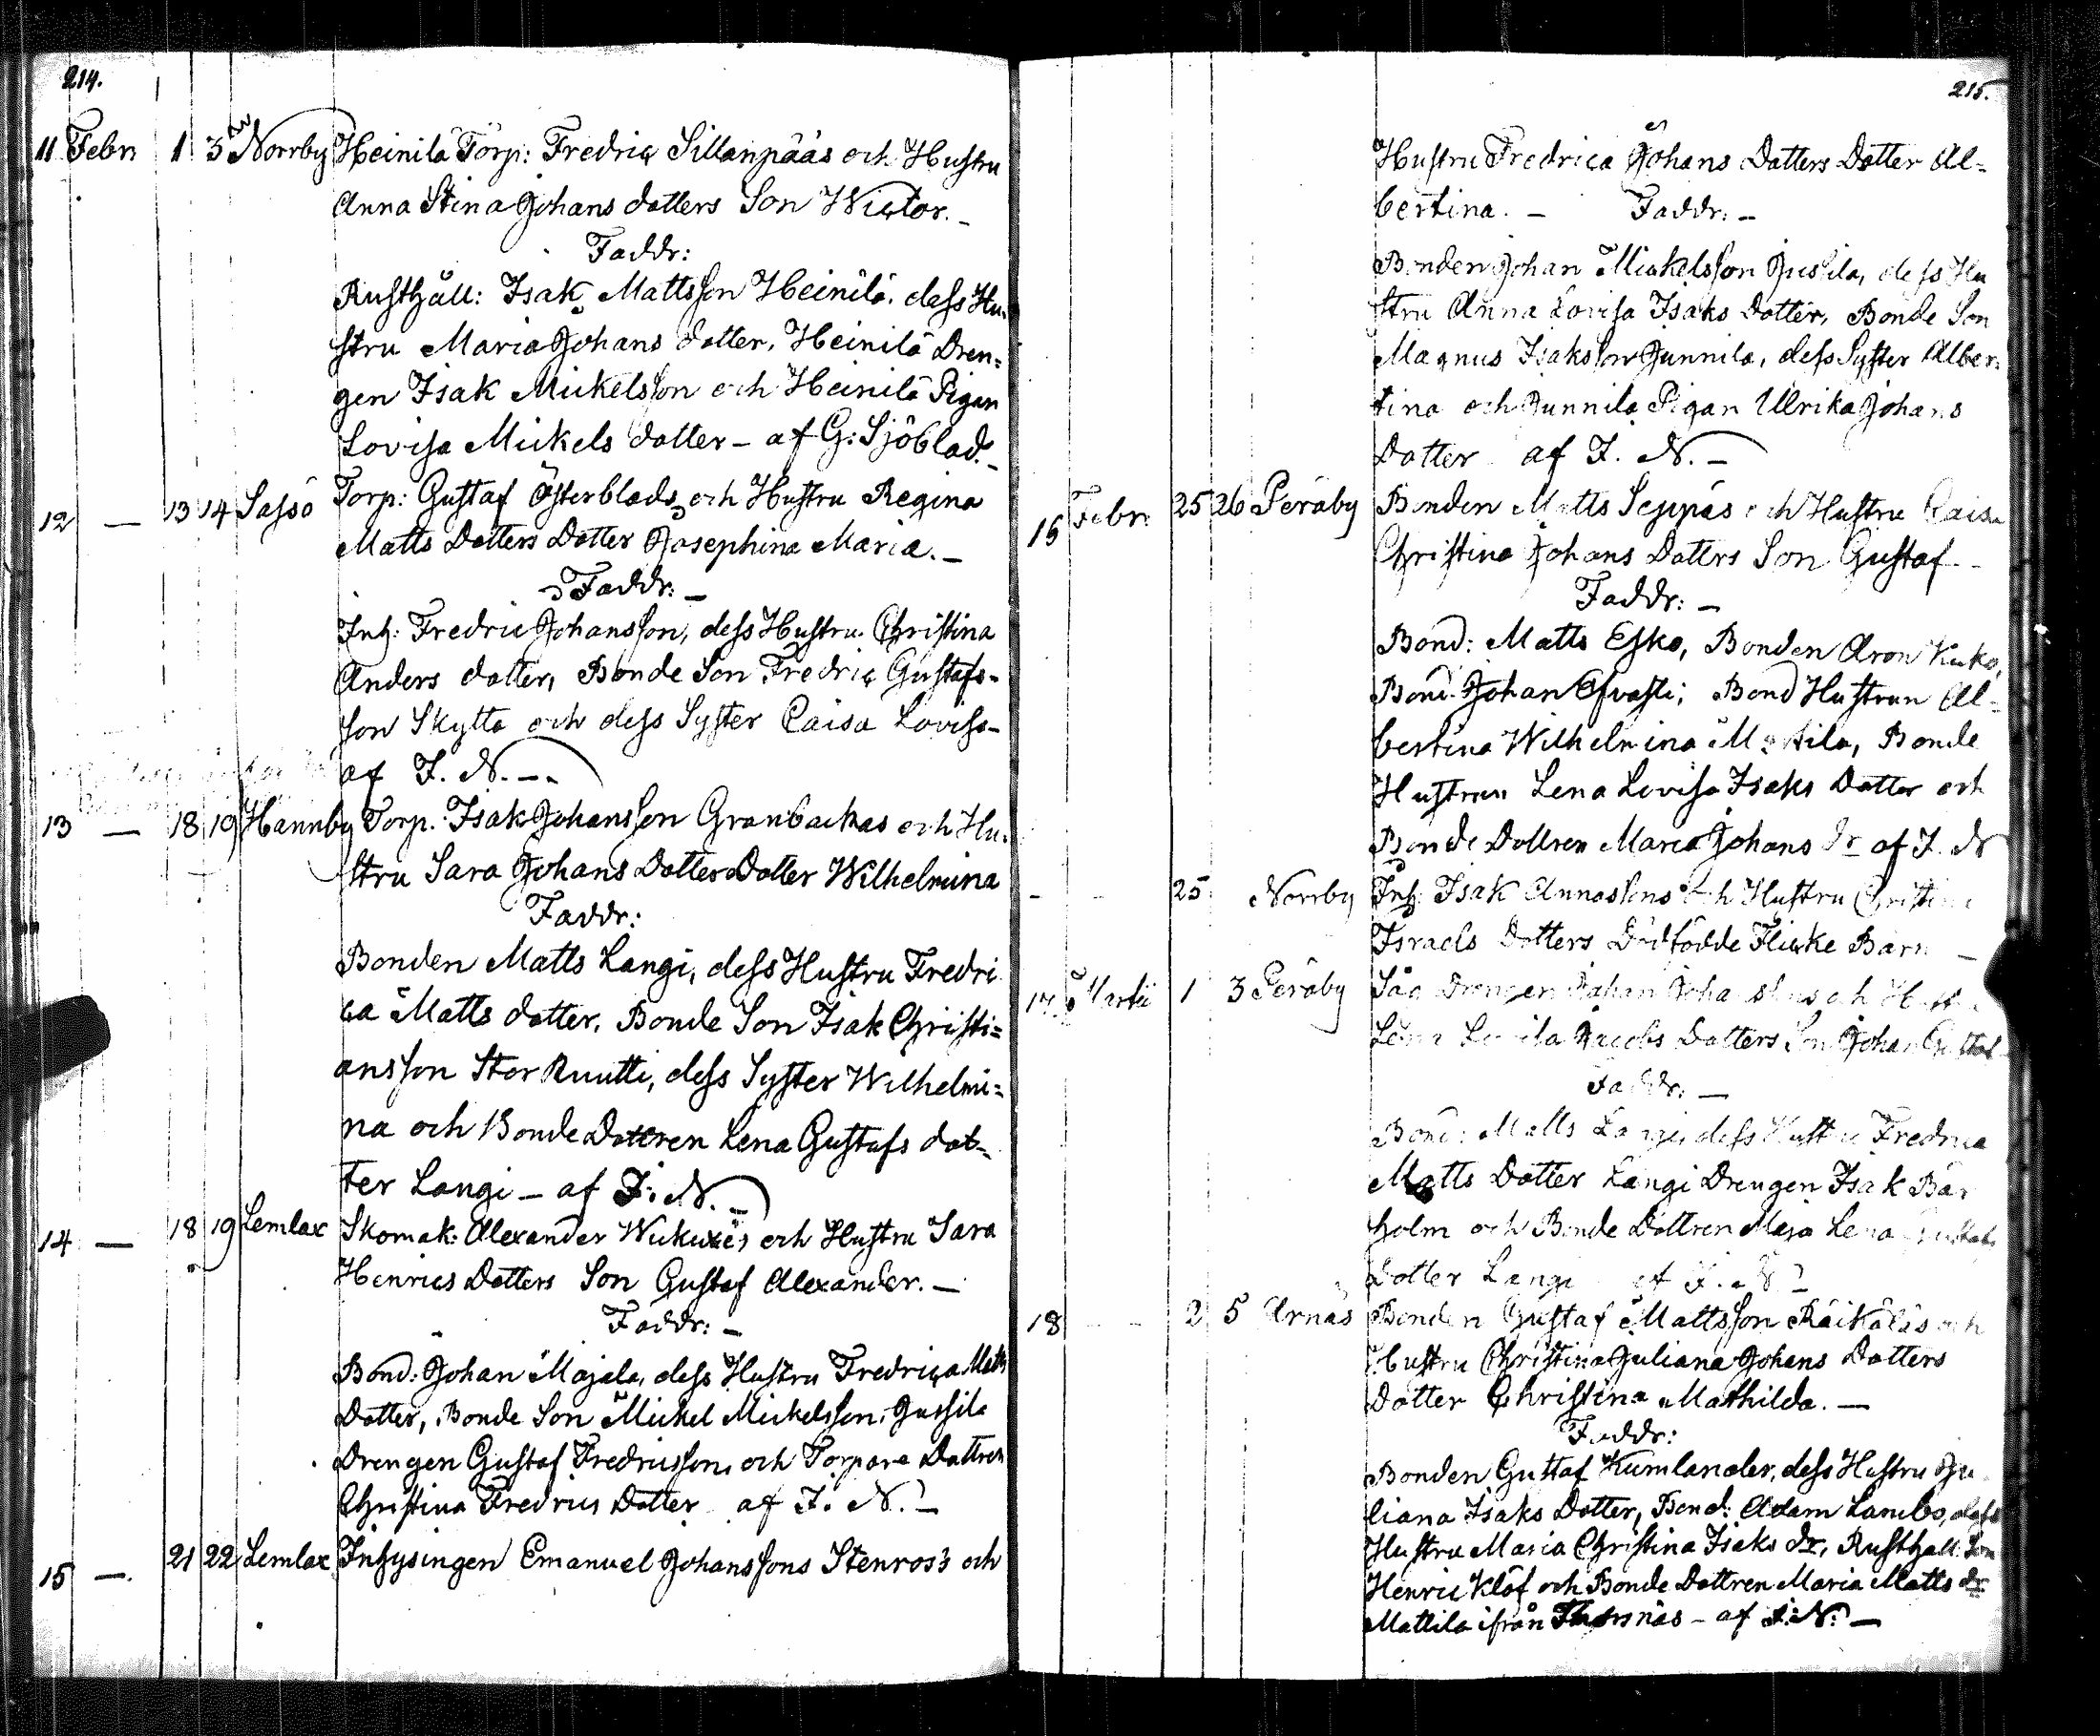 214.
11 Febr: 1 3 Norrby Heinilä Torp: Fredric Sillanpääs och Hustru
Anna Stina Johans dotters Son Wictor. –
Faddr:
Rusthåll: Isak Mattsson Heinilä, dess Hu-
stru Maria Johans dotter, Heinilä Dren-
gen Isak Mickelsson och Heinilä Pigan
Lovisa Mickels dotter – af G: Sjöblad. –
12 — 13 14 Sassö Torp: Gustaf Österblads och Hustru Regina
Matts Dotters Dotter Josephina Maria. –
Faddr: –
Inh: Fredric Johansson, dess Hustru Christina
Anders dotter, Bonde Son Fredric Gustafs-
son Skyttä och dess Syster Caisa Lovisa –
af I. N. –
13 — 18 19 Hannby Torp. Isak Johansson Granbackas och Hu-
stru Sara Johans Dotters Dotter Wilhelmina
Faddr:
Bonden Matts Langi, dess Hustru Fredri
ca Matts dotter, Bonde Son Isak Christi=
ansson Stor Ruutti, dess Syster Wilhelmi=
na och Bonde Dottren Lena Gustafs dot-
ter Langi – af I. N. –
14 — 18 19 Lemlax Skomak: Alexander och Hustru Sara
Henrics Dotters Son Gustaf Alexander. –
Faddr: –
Bond: Johan Majala, dess Hustru Fredrica Matts
Dotter, Bonde Son Mickel Mickelsson Jussila
Drengen Gustaf Fredricsson, och Torpare Dottren
Christina Fredrics Dotter af I. N. –
15 — 21 22 Lemlax Inhysingen Emanuel Johanssons Stenros's och
215.
Hustru Fredrica Johans Dotters Dotter Al-
bertina. – Faddr: –
Bonden Johan Mickelsson Jussila, dess Hu
stru Anna Lovisa Isaks Dotter, Bonde Son
Magnus Isaksson Junnila, dess Syster Alber-
tina och Junnila Pigan Ulrika Johans
Dotter af I. N. –
16 Febr: 25 26 Peräby Bonden Matts Seppäs och Hustru Caisa
Christina Johans Dotters Son Gustaf –
Faddr: –
Bond: Matts Esko, Bonden Aron Kuko,
Bond. Johan Bond Hustrun Al-
bertina Wilhelmina Mattila, Bonde
Hustrun Lena Lovisa Isaks Dotter och
Bonde Dottren Maria Johans dr af I. N
– – 25 Norrby Inh: Isak Annassons och Hustru Christina
Israels Dotters Dödfödde Flicke Barn –
17 Martii 1 3 Peräby Såg Drengen Johan Johanssons och Hustru
Lena Lovisa Jacobs Dotters Son Johan Gustaf –
Faddr: –
Bond: Matts Langi, dess Hustru Fredrica
Matts Dotter Langi Drengen Isak Bär
holm och Bonde Dottren Maja Lena Gustafs
Dotter Langi af I. N. –
18 — 2 5 Arnäs Bonden Gustaf Mattsson Räikäläs och
Hustru Christina Juliana Johans Dotters
Dotter Christina Mathilda. —
Faddr:
Bonden Gustaf Kumlander, dess Hustru Ju
liana Isaks Dotter, Bond: Adam Lambo, dess
Hustru Maria Christina Isaks dr, Rusthåll. Son
Henric Klöf och Bonde Dottren Maria Matts dr
Mattila ifrån – af I. N. –